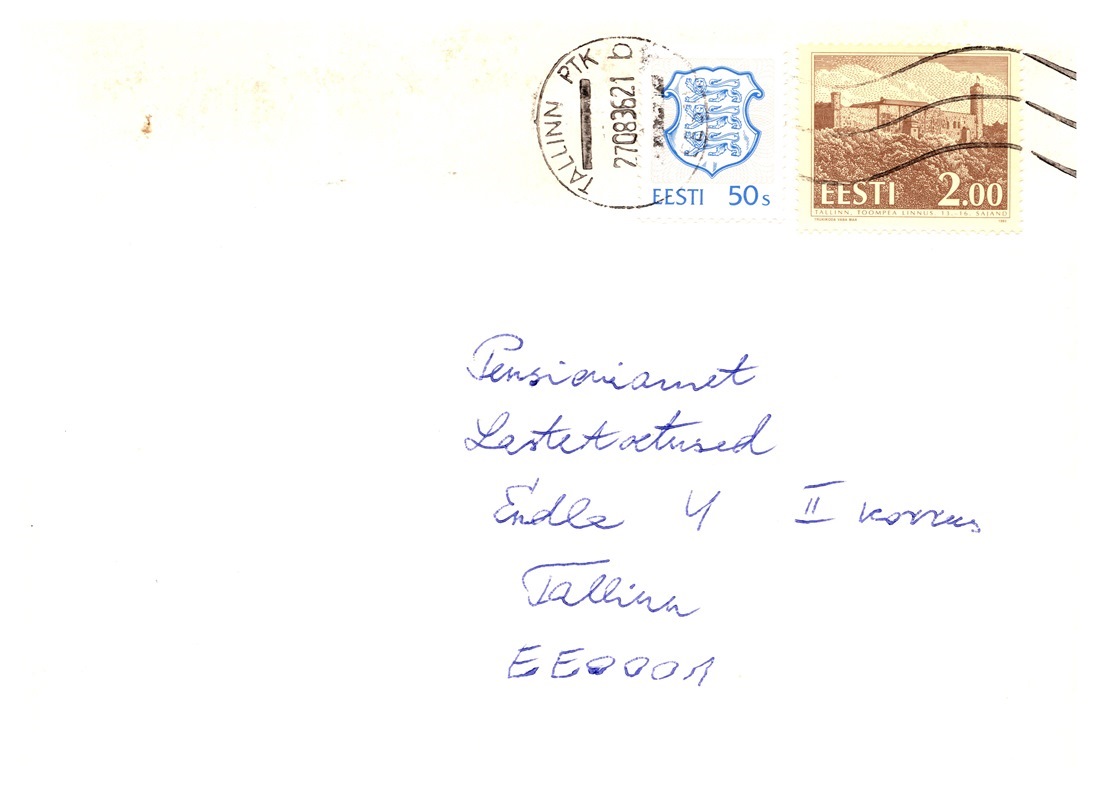 TALLINN PTK b
27083621
EESTI 50s
EESTI 2.00
TALLINN, TOOMPEA LINNUS, 13.-16. SAJAND
Pensioniamet
Lastetoetused
Endla 4 II korrus
Tallinn
EE0001